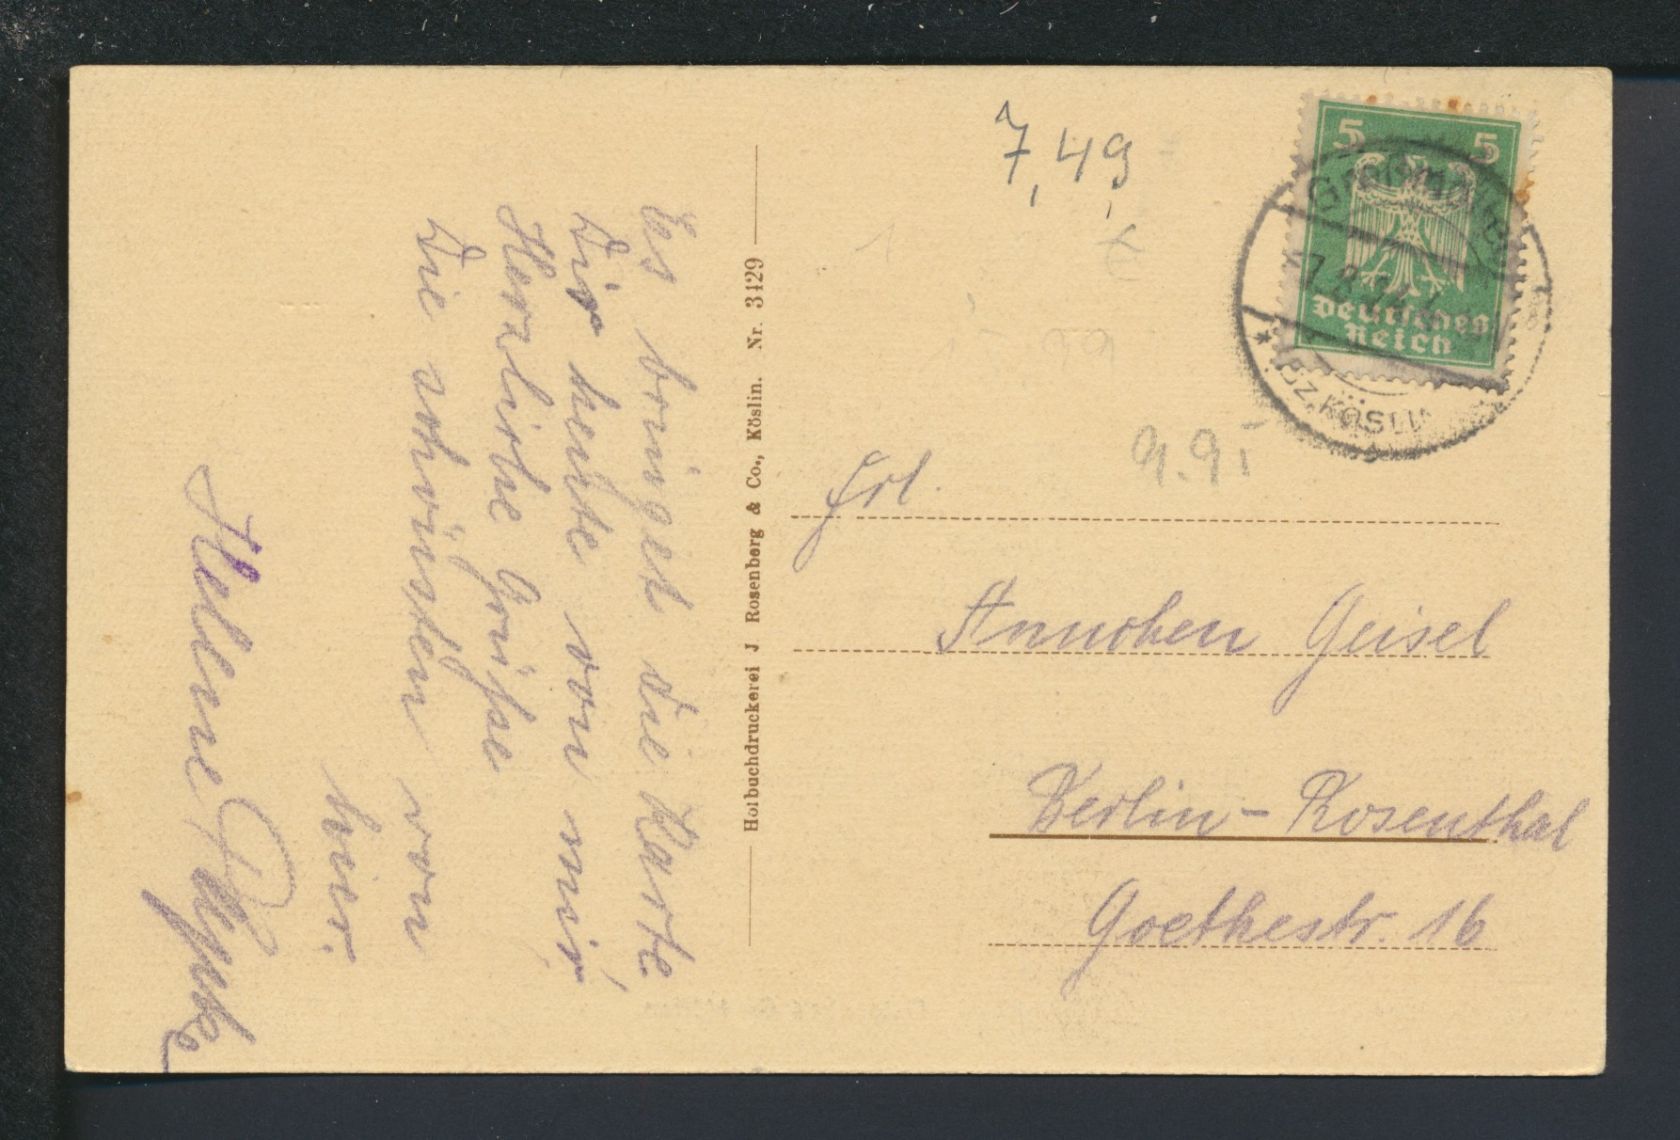 Es bringet die Karte
Dir heute von mir
Herzliche Grüße
Die schönsten von
hier.
Hellene
Hofbuchdruckerei J Rosenberg & Co., Köslin. Nr. 3129
7,49
5 5
Deutsches
Reich
BZ. KÖSLIN
9.95
Frl.
Annchen Geisel
Berlin - Rosenthal
Goethestr. 16